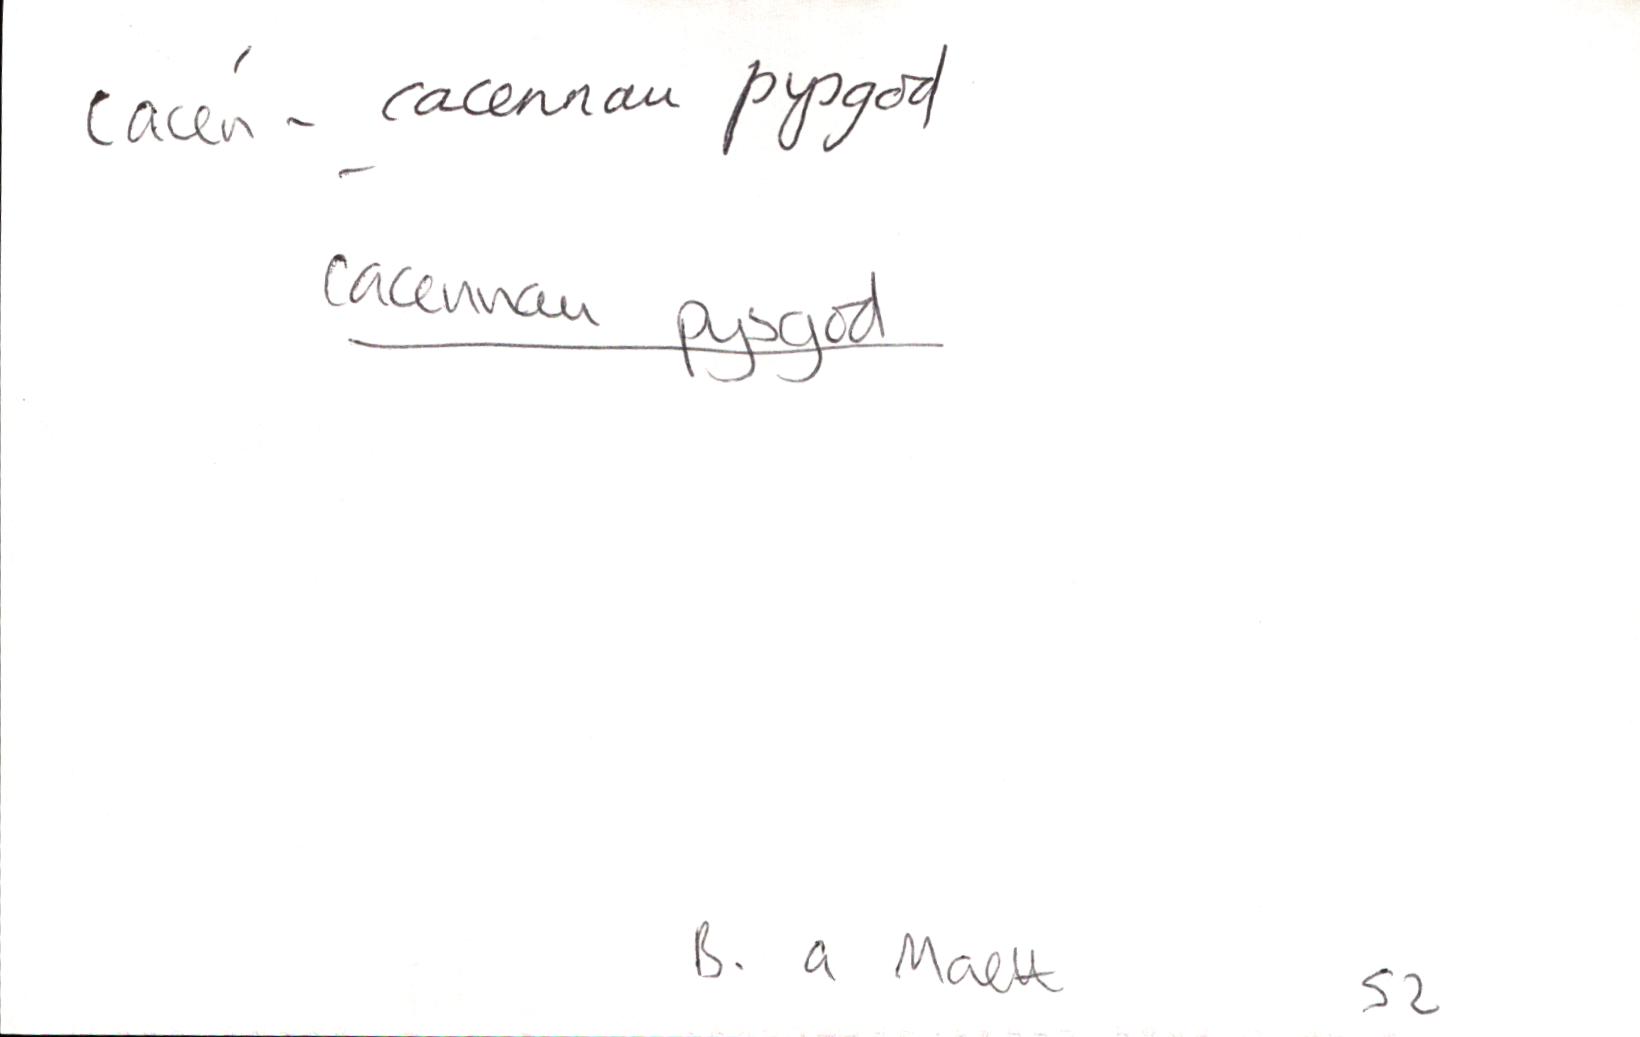 cacen - cacennau pysgod
cacennau pysgod
B. a Maeth 52